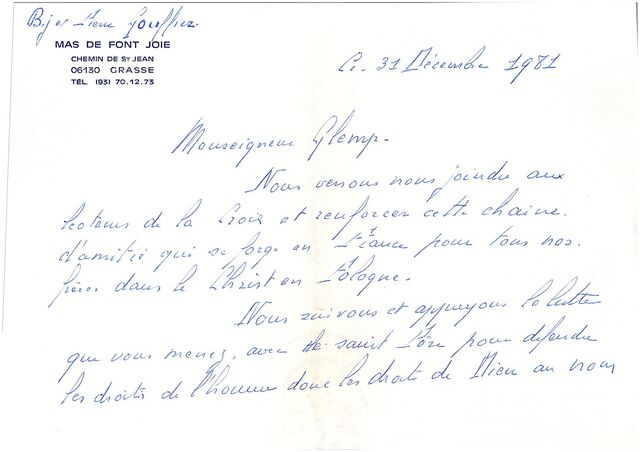 Bij et Pierre Gouffiez.
MAS DE FONT JOIE
CHEMIN DE ST JEAN
06130 GRASSE
TEL. (93) 70.12.73
Ce. 31 Décembre 1981
Monseigneur Glemp.
Nous venons nous joindre aux
lecteurs de la Croix et renforcer cette chaine.
d'amitié qui se forge en France pour tous nos.
frères dans le Christ en Pologne.
Nous suivons et appuyons la lutte
que vous menez, avec le saint Père pour defendre
les droits de l'homme donc les droits de Dieu au nom